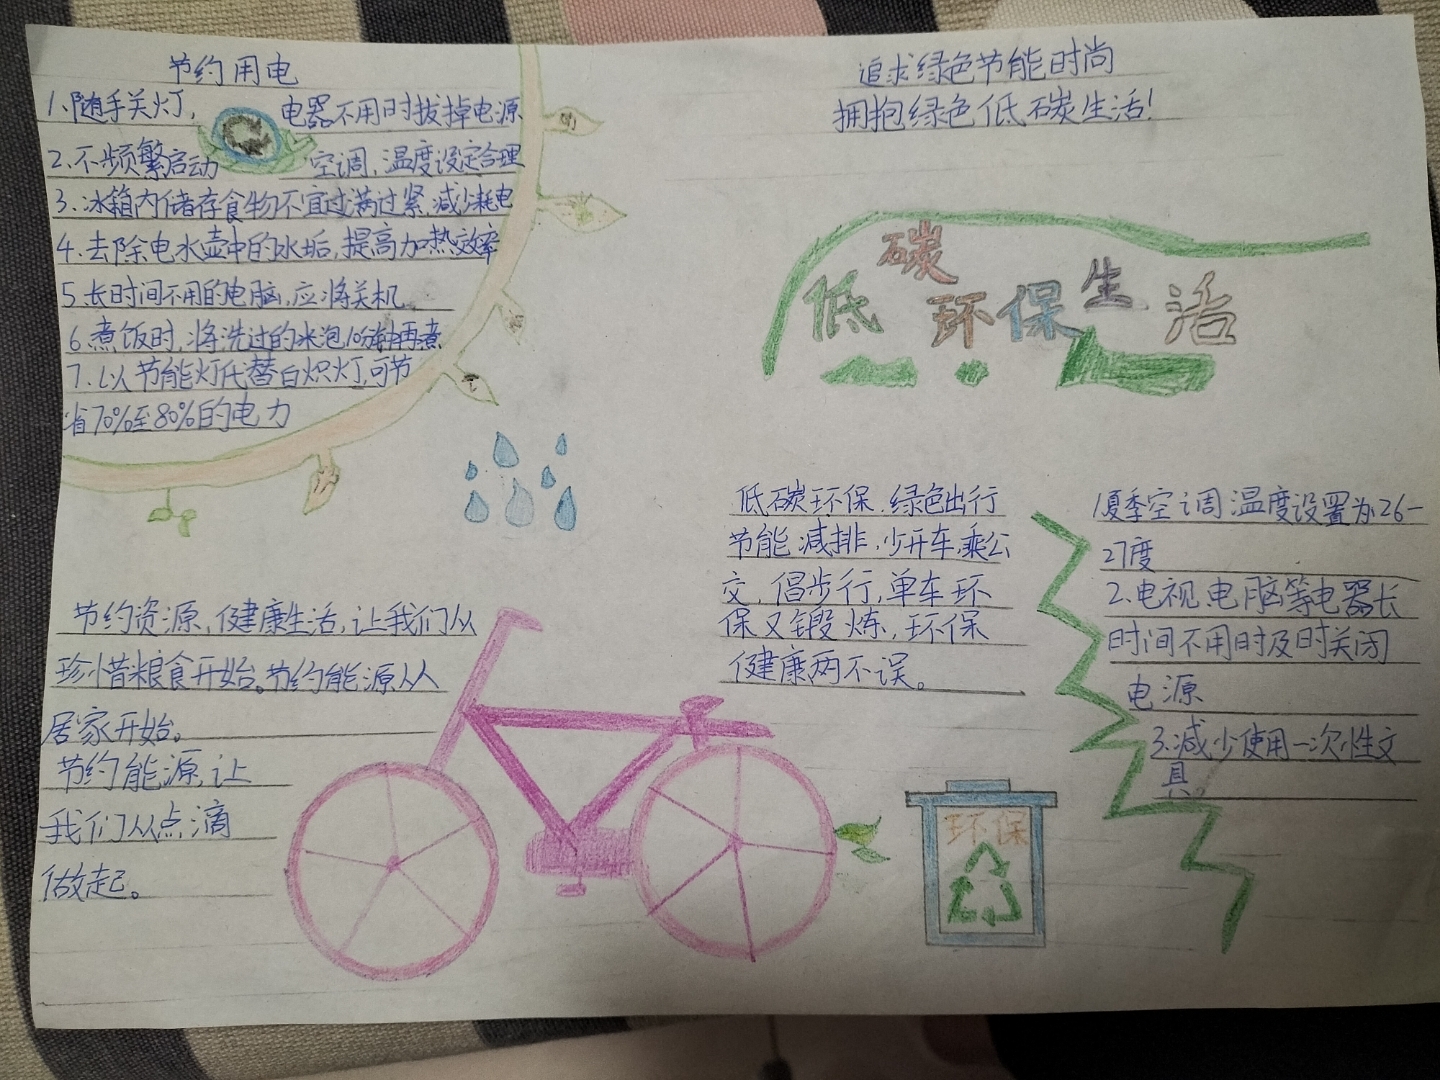 节约用电
1、随手关灯, 电器不用时拔掉电源
2.不频繁启动 空调,温度设定合理
3.冰箱内储存食物不宜过满过紧,减少耗电
4.去除电水壶中的水垢,提高加热效率
5.长时间不用的电脑,应将关机
6.煮饭时,将洗过的米泡10分钟再煮
7.以节能灯代替白炽灯,可节
省70%至80%的电力
追求绿色节能时尚
拥抱绿色低碳生活!
低碳环保生活
低碳环保.绿色出行
节能减排,少开车,乘公
交,倡步行,单车环
保又锻炼,环保
健康两不误。
1夏季空调温度设置为26-
27度
2.电视电脑等电器长
时间不用时及时关闭
电源
3.减少使用一次性文
具
节约资源,健康生活,让我们从
珍惜粮食开始。节约能源从
居家开始。
节约能源,让
我们从点滴
做起。
环保